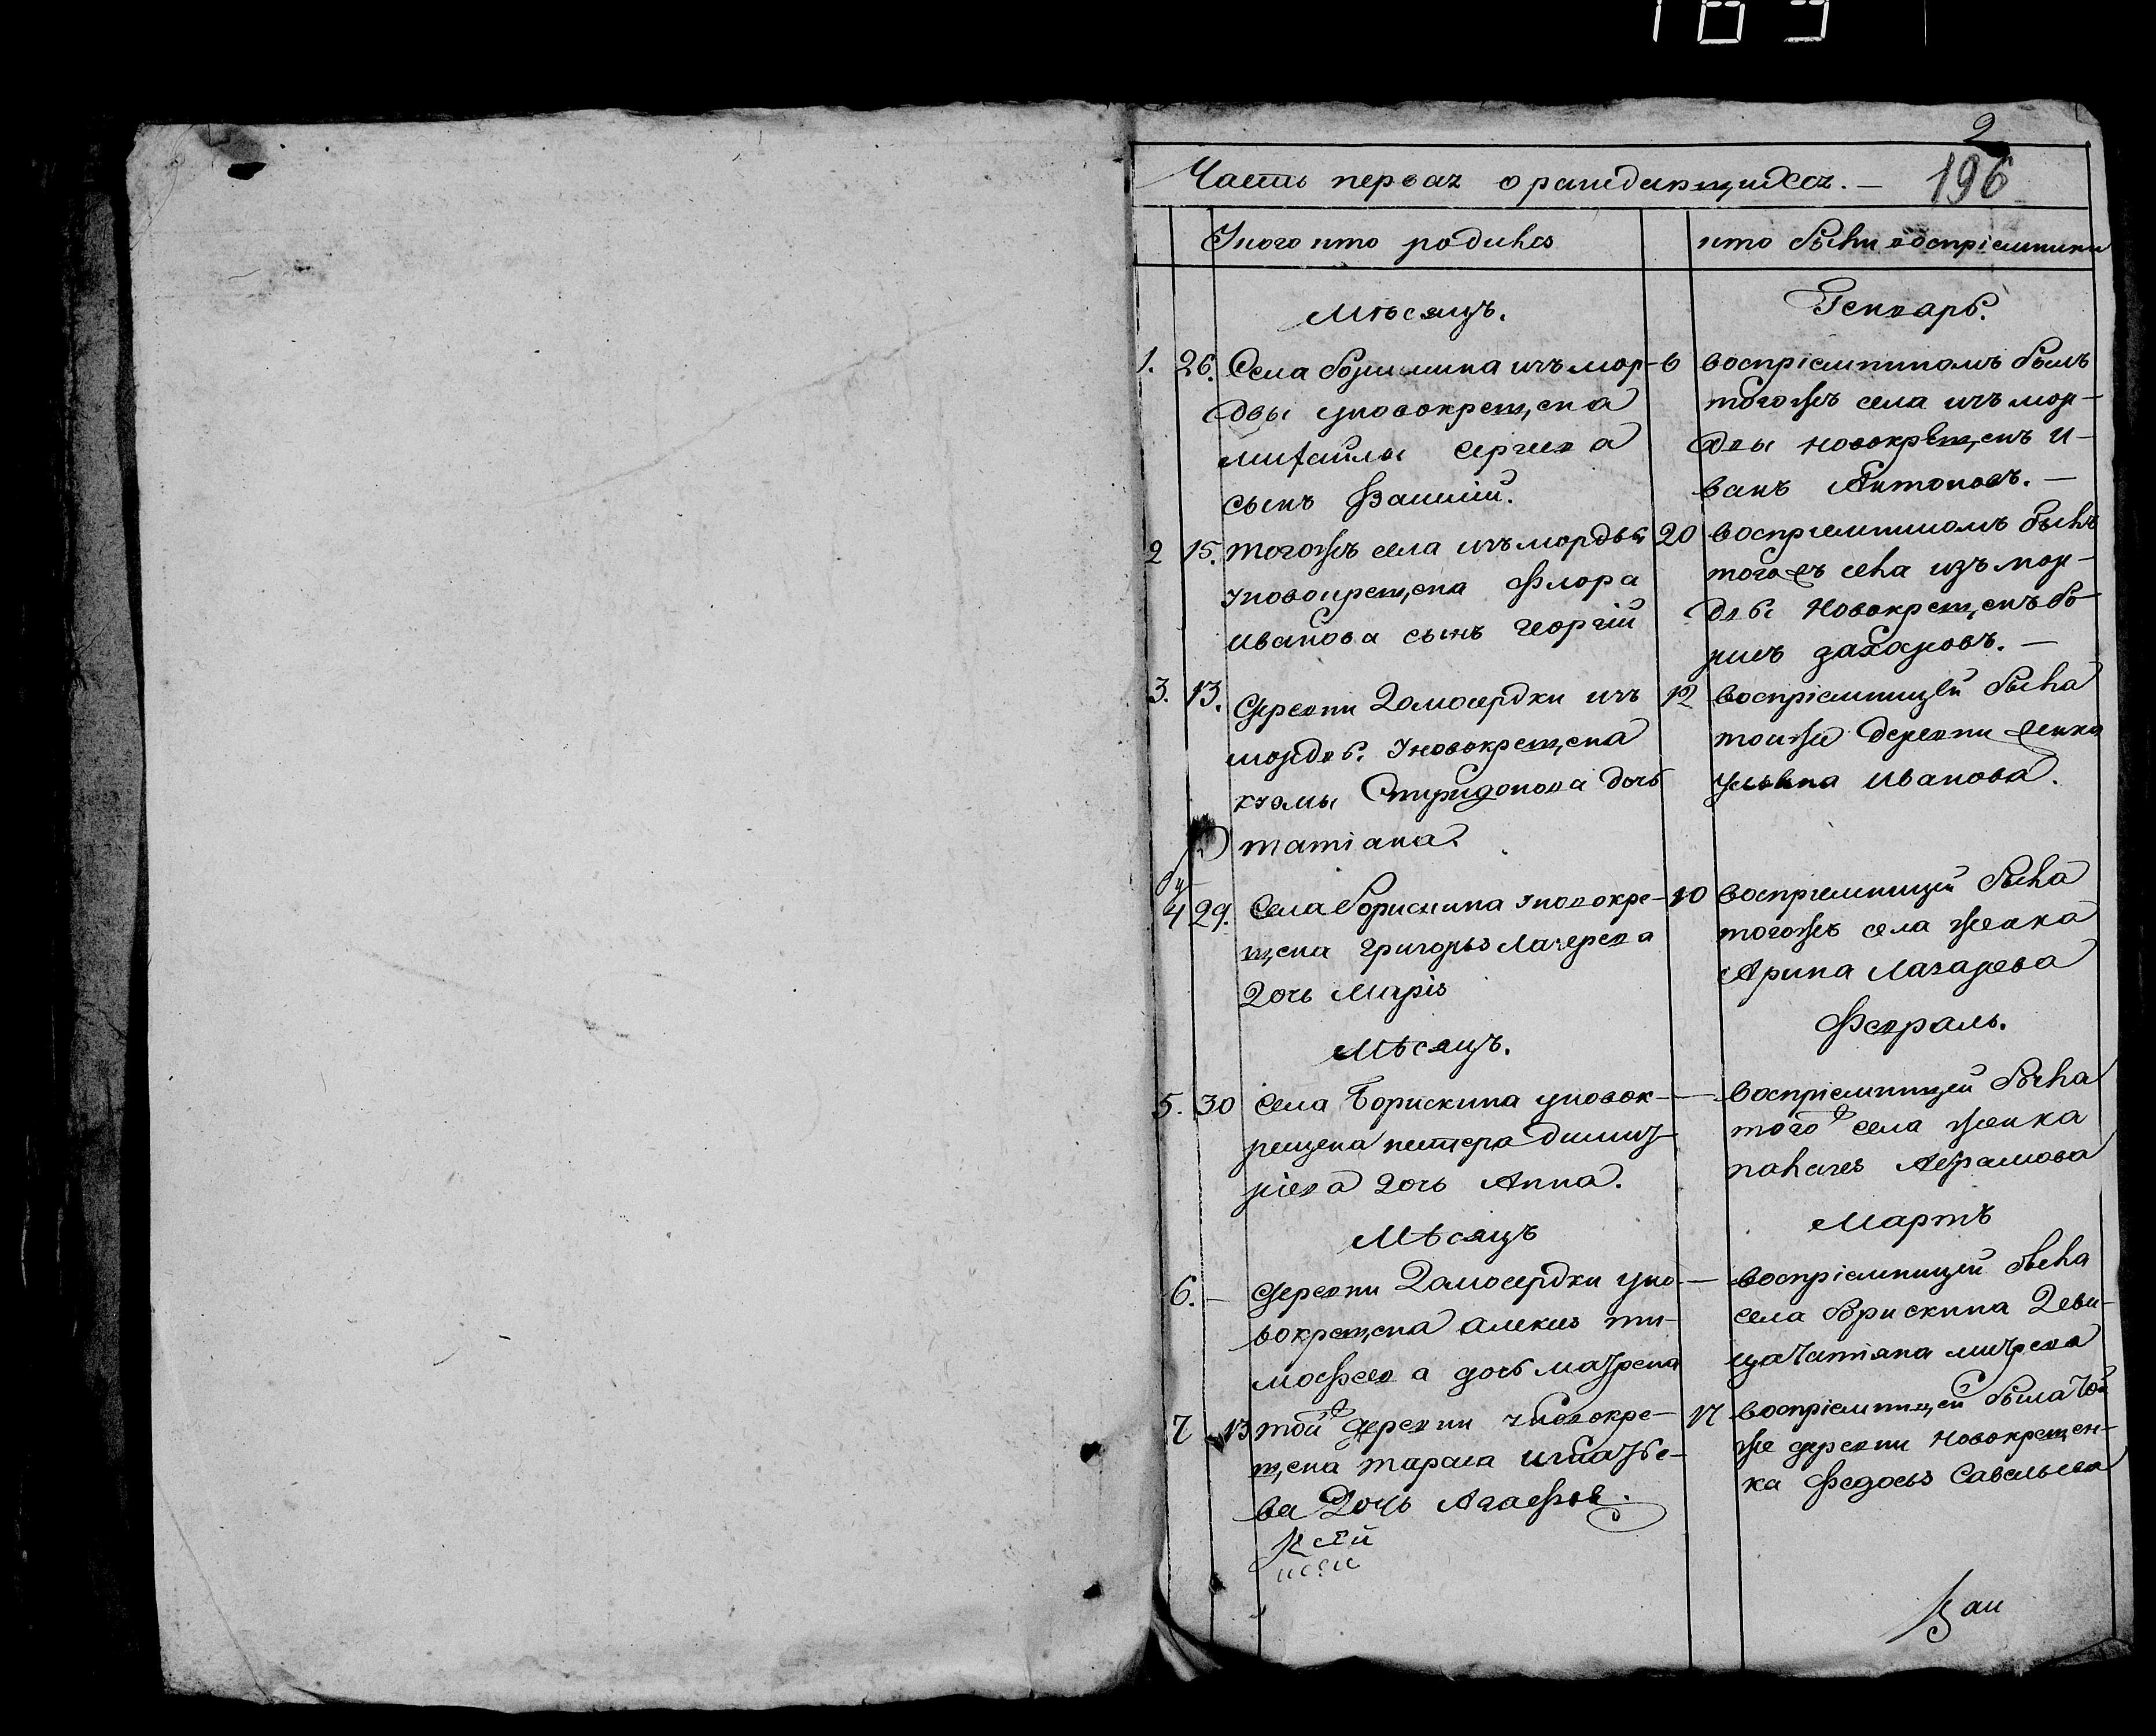 183
2
Часть первая о раждающихся. — 196
У кого кто родился
кто были воспріемники
Мѣсяцъ.
Генварь.
1. 26. Села Борискина изъ мор-
двы у новокрещена
михайлы Сергѣева
сынъ Василій.
6 воспріемникомъ былъ
тогожъ села изъ мор-
двы новокрещенъ И-
ванъ Антоновъ. —
2 15. тогожъ села изъ мордвы
у новокрещена Флора
иванова сынъ георгій
20 воспріемникомъ былъ
тогожъ села изъ мор-
двы новокрещенъ бо-
рисъ захаровъ. —
3. 13. Деревни Домосердки изъ
мордвы у новокрещена
козмы Спиридонова дочь
татіана.
12 воспріемницей была
тоижъ деревни женка
ульяна иванова.
4 29. Села Борискина у новокре-
щена григорья Лазарева
дочь Марія
10 воспріемницей была
тогожъ села женка
Арина Лазарева
Мѣсяцъ.
Февраль.
5. 30 Села Борискина у новок-
рещена петра дмит-
ріева дочь Анна.
— воспріемницей была
тогожъ села женка
Авраамова
Мѣсяцъ
Мартъ
6. — Деревни Домосердки у но-
вокрещена алексѣя ти-
мофѣева дочь матрена
— воспріемницей была
села Борискина деви-
ца татіяна
7 13 той ж деревни у новокре-
щена тараса игнатье-
ва дочь Агафья.
17 воспріемницей была той
же деревни новокрещен-
ка Федосья Савельева